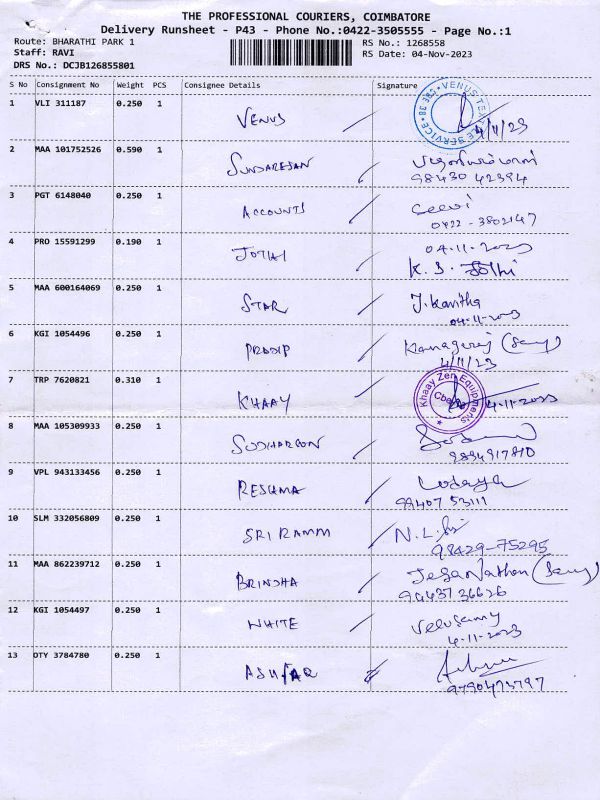 THE PROFESSIONAL COURIERS, COIMBATORE
Delivery Runsheet - P43 - Phone No.:0422-3505555 - Page No.:1
Route: BHARATHI PARK 1 RS No.: 1268558
Staff: RAVI RS Date: 04-Nov-2023
DRS No.: DCJB126855801
S No Consignment No Weight PCS Consignee Details Signature
1 VLI 311187 0.250 1 VENUS 4/11/23
2 MAA 101752526 0.590 1 SUNDARESAN
98430 42394
3 PGT 6148040 0.250 1 ACCOUNTS Selvi
0422-3802147
4 PRO 15591299 0.190 1 JOTHI 04.11.2023
K. S. Jothi
5 MAA 600164069 0.250 1 STAR J. Kavitha
04.11.2023
6 KGI 1054496 0.250 1 PRADIP Kanagaraj
4/11/23
7 TRP 7620821 0.310 1 KHAAY Khaay Zen Equipments 4.11.2023
8 MAA 105309933 0.250 1
9894917810
9 VPL 943133456 0.250 1 RESHMA
99407 53111
10 SLM 332056809 0.250 1 SRI RAMM N.L.
98429-75295
11 MAA 862239712 0.250 1 BRINDHA JegaNathan
94437 36626
12 KGI 1054497 0.250 1 WHITE Velusamy
4.11.2023
13 OTY 3784780 0.250 1 ASHFAQ
9790473797